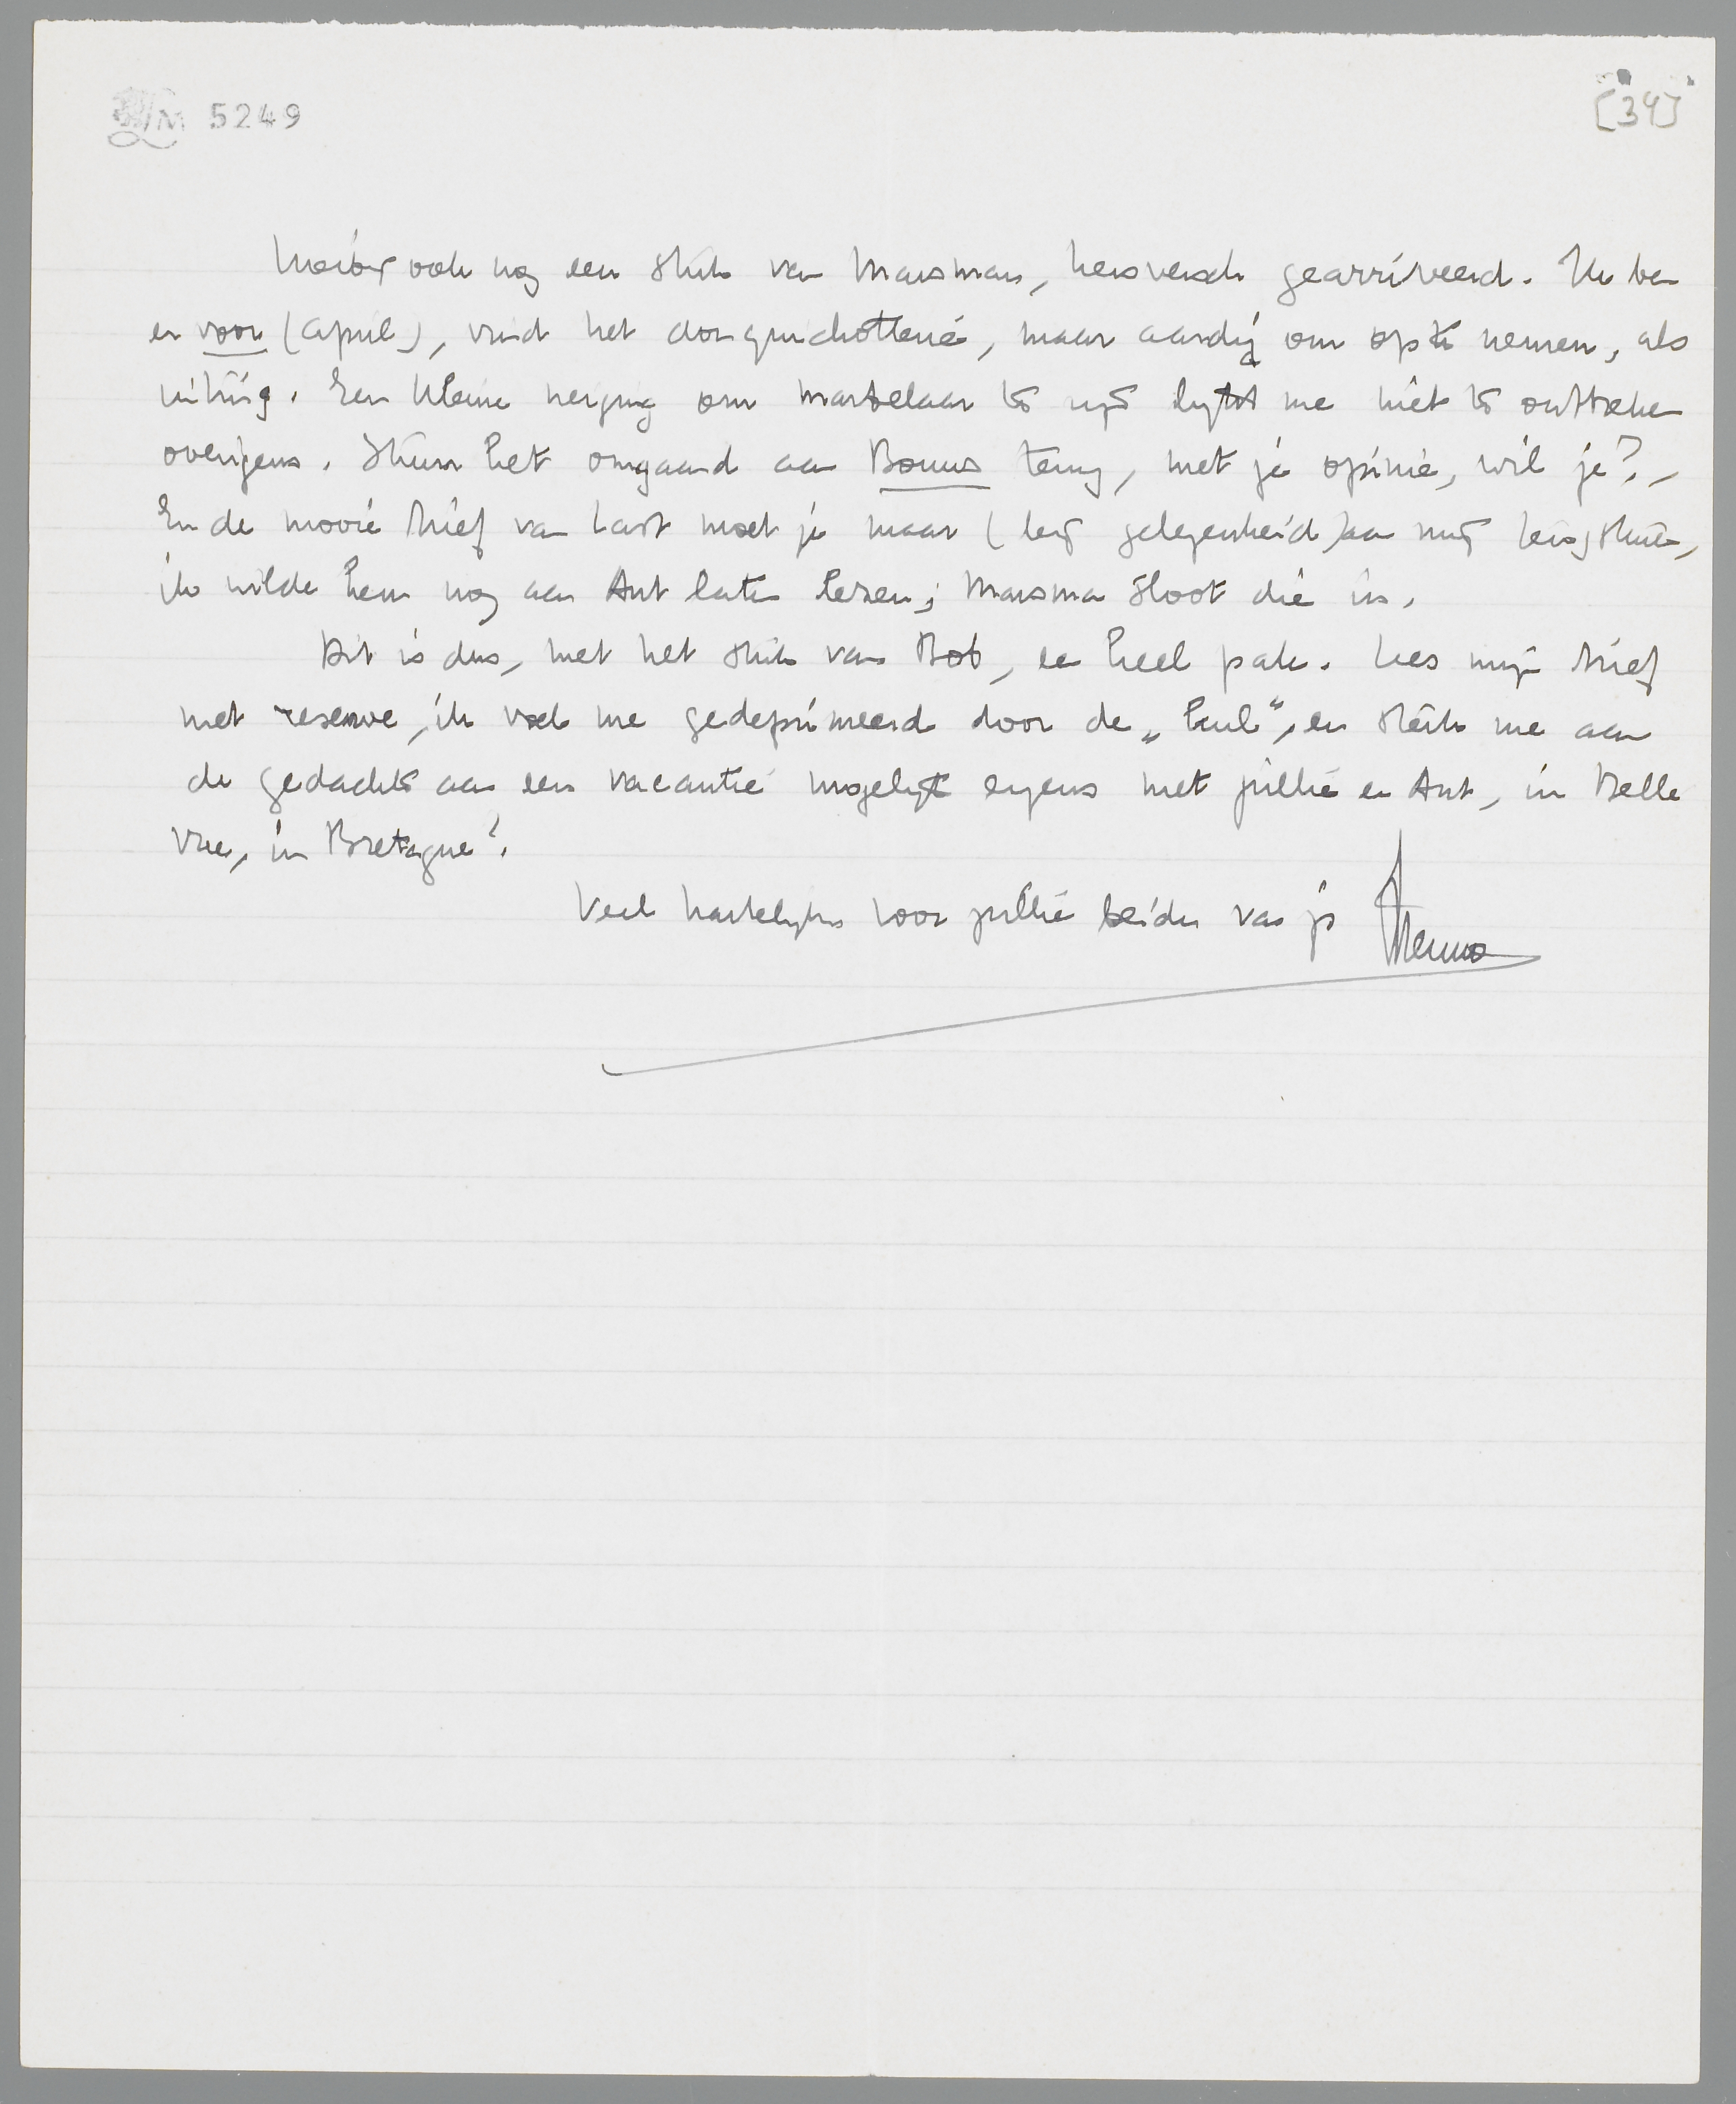 LM 5249
[34]
Hierbij ook nog een stuk van Marsman, heet versch gearriveerd. Ik ben
er voor (April), vind het donquichotterie, maar aardig om op te nemen, als
uiting. Een kleine neiging om martelaar te zijn lijkt me niet te ontbreken
overigens. Stuur het omgaand aan Bouws terug, met je opinie, wil je? –
En de mooie brief van Last moet je maar (bij gelegenheid) aan mij terugsturen,
ik wilde hem nog aan Ant laten lezen; Marsman sloot die in.
Dit is dus, met het stuk van Bob, een heel pak. Lees mijn brief
met reserve, ik voel me gedeprimeerd door de „ ", en sterk me aan
de gedachte aan een vacantie mogelijk ergens met jullie en Ant, in Belle
vue, in Bretagne?
Veel hartelijks voor jullie beiden van je Menno